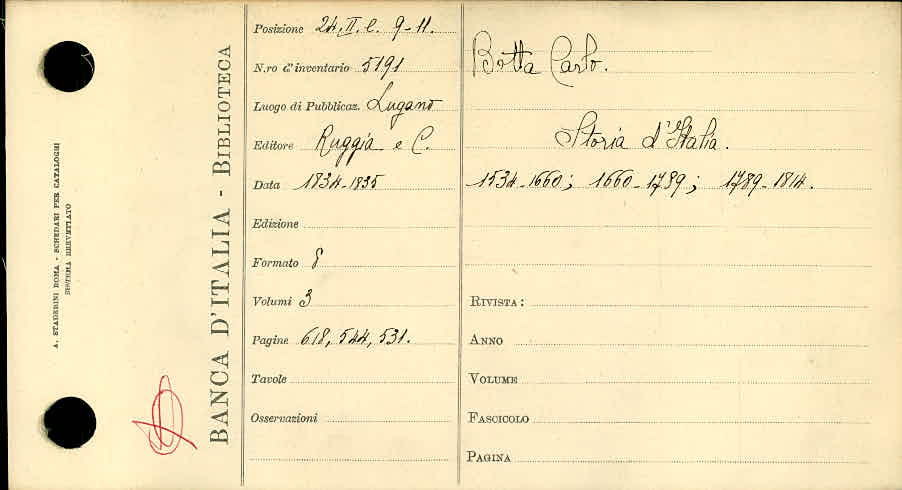 A. STADERINI ROMA - SCHEDARI PER CATALOGHI
SISTEMA BREVETTATO
BANCA D'ITALIA - BIBLIOTECA
Posizione 24. II. C. 9-11.
N.ro d'inventario 5191
Luogo di Pubblicaz. Lugano
Editore Ruggia e C.
Data 1834-1835
Edizione
Formato 8
Volumi 3
Pagine 618, 544, 531.
Tavole
Osservazioni
Botta Carlo.
Storia d'Italia.
1534-1660; 1660-1789; 1789-1814.
RIVISTA:
ANNO
VOLUME
FASCICOLO
PAGINA